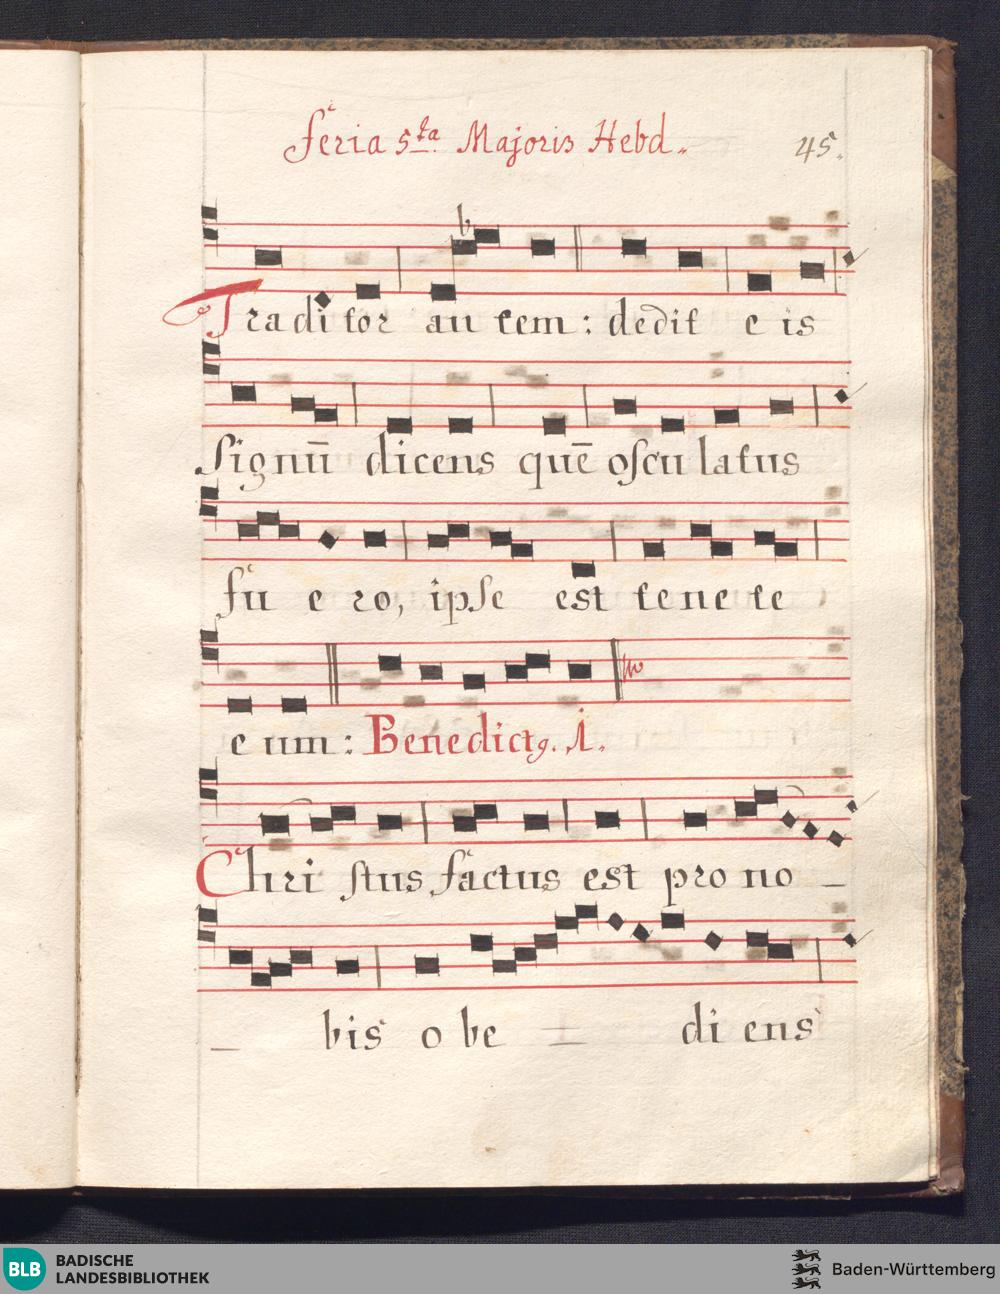 Feria 5ta. Majoris Hebd.
45.
b
Traditor autem: dedit eis
signū dicens quē osculatus
fuero, ipse est tenete
eum: Benedictg. 1.
Christus factus est pro no _
_ bis obe _ diens
BLB BADISCHE LANDESBIBLIOTHEK
Baden-Württemberg